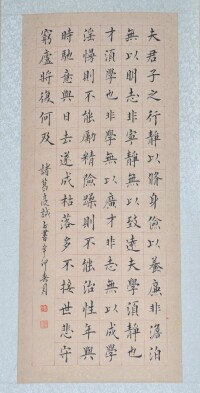 夫君子之行靜以脩身儉以養廉非澹泊
無以明志非寧靜無以致遠夫學須靜也
才須學也非學無以廣才非志無以成學
淫慢則不能勵精險躁則不能治性年與
時馳意與日去遂成枯落多不接世悲守
窮廬將復何及
諸葛亮誡子書辛卯月